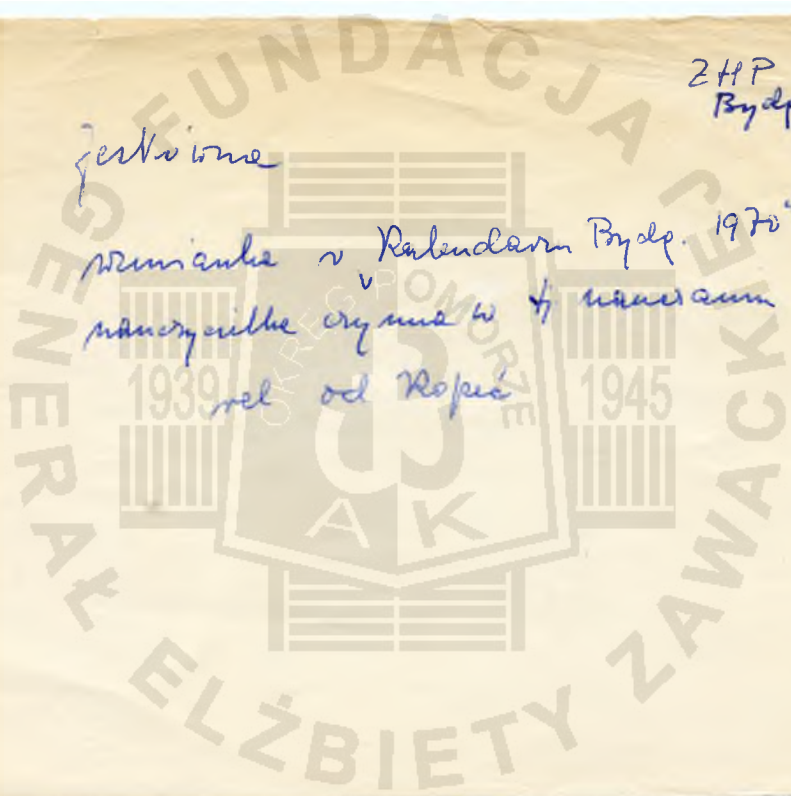 ZHP
Bydg
Jeskówna
wzmianka w "Kalendarzu Bydg. 1970"
nauczycielka czynna w tj nauczaniu
rel od Kopeć
FUNDACJA GENERAŁ ELŻBIETY ZAWACKIEJ
OKRĘG POMORZE
1939
1945
AK